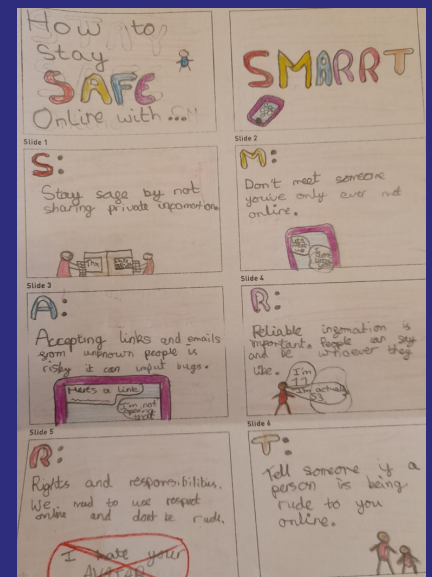 How to
Stay
SAFE
Online with ...
SMARRT
Slide 1
Slide 2
S:
Stay sage by not
sharing private
M:
Don't meet someone
you've only ever met
online.
Slide 3
Slide 4
A:
Accepting links and emails
from unknown people is
risky it can input bugs.
Here's a link
I'm not
opening
that
R:
Reliable information is
important. People can say
and be whoever they
like.
I'm
11
I'm actually
53
Slide 5
Slide 6
R:
Rights and responsibilities.
We need to use respect
online and dont be rude.
I hate your
AVATAR
T:
Tell someone if a
person is being
rude to you
online.